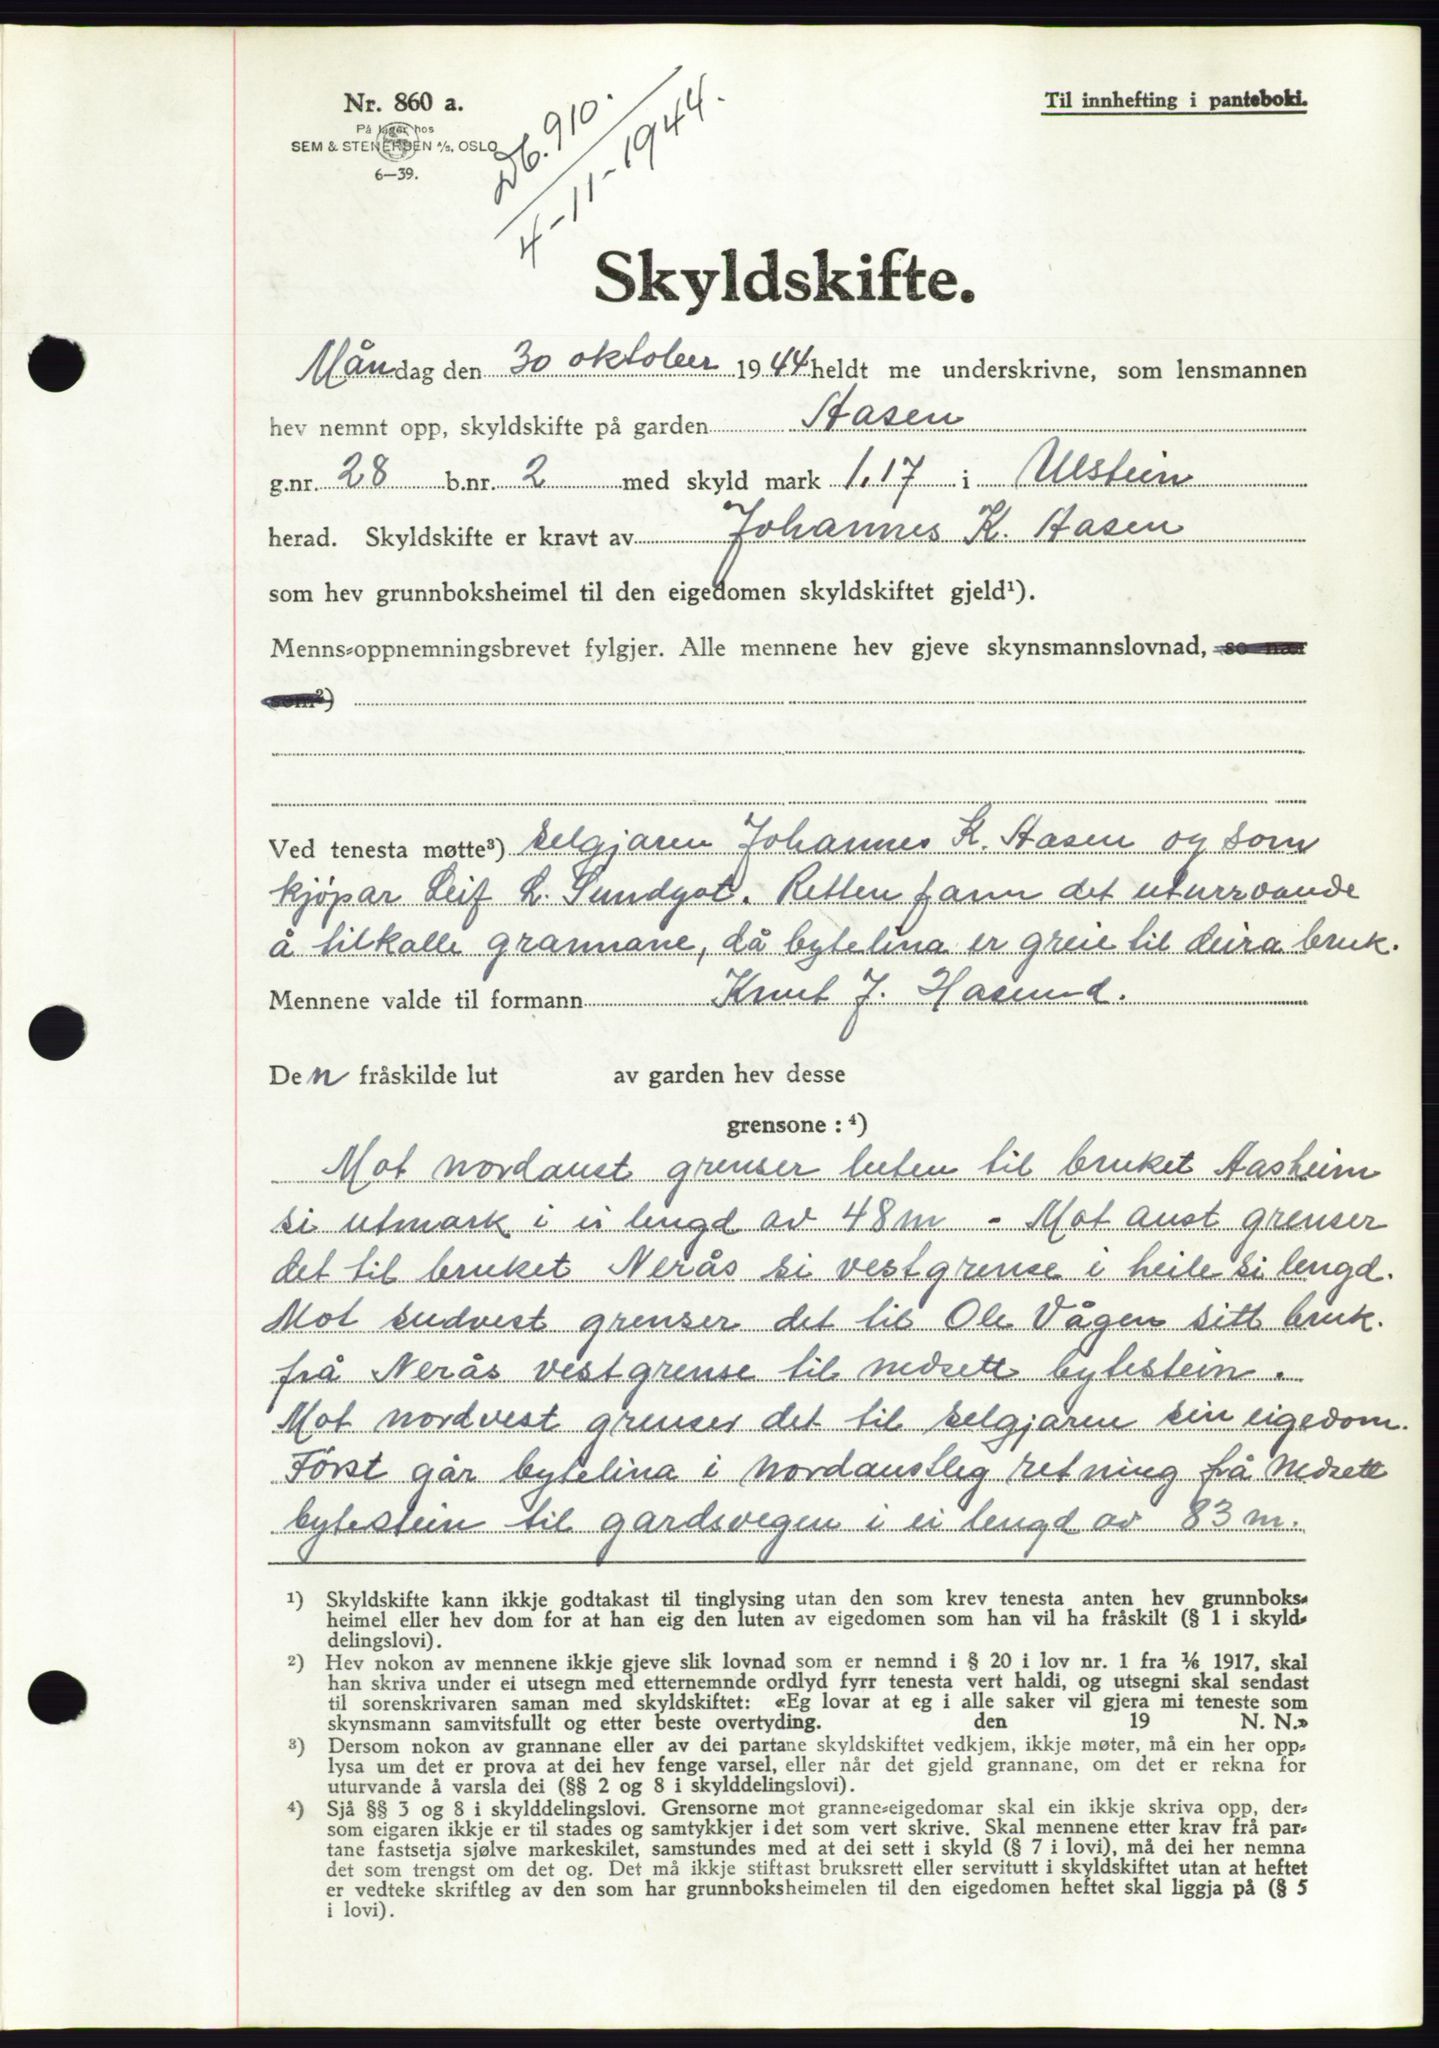 Nr. 860 a.
På lager hos
SEM & STENERSEN A/S, OSLO
6—39.
Db. 910.
4-11-1944.
Til innhefting i panteboki.
Skyldskifte.
Måndag den 30 oktober 1944 heldt me underskrivne, som lensmannen
hev nemnt opp, skyldskifte på garden Aasen
g.nr. 28 b.nr. 2 med skyld mark 1,17 i Ulstein
herad. Skyldskifte er kravt av Johannes K. Aasen
som hev grunnboksheimel til den eigedomen skyldskiftet gjeld¹).
Menns-oppnemningsbrevet fylgjer. Alle mennene hev gjeve skynsmannslovnad, so nær
som²)
Ved tenesta møtte³) selgjaren Johannes K. Aasen og som
kjøpar Leif L. Sundgot. Retten fann det uturvande
å tilkalle grannane, då bytelina er greie til deira bruk.
Mennene valde til formann Knut J. Hasund.
Den fråskilde lut av garden hev desse
grensone : ⁴)
Mot nordaust grenser luten til bruket Aasheim
si utmark i ei lengd av 48 m - Mot aust grenser
det til bruket Nerås si vestgrense i heile si lengd.
Mot sudvest grenser det til Ole Vågen sitt bruk.
frå Nerås vestgrense til nedsett bytestein.
Mot nordvest grenser det til selgjaren sin eigedom.
Först går bytelina i nordaustleg retning frå nedsett
bytestein til gardsvegen i ei lengd av 83 m.
¹) Skyldskifte kann ikkje godtakast til tinglysing utan den som krev tenesta anten hev grunnboks-
heimel eller hev dom for at han eig den luten av eigedomen som han vil ha fråskilt (§ 1 i skyld-
delingslovi).
²) Hev nokon av mennene ikkje gjeve slik lovnad som er nemnd i § 20 i lov nr. 1 fra 1/6 1917, skal
han skriva under ei utsegn med etternemnde ordlyd fyrr tenesta vert haldi, og utsegni skal sendast
til sorenskrivaren saman med skyldskiftet: «Eg lovar at eg i alle saker vil gjera mi teneste som
skynsmann samvitsfullt og etter beste overtyding. den 19 N. N.»
³) Dersom nokon av grannane eller av dei partane skyldskiftet vedkjem, ikkje møter, må ein her opp-
lysa um det er prova at dei hev fenge varsel, eller når det gjeld grannane, om det er rekna for
uturvande å varsla dei (§§ 2 og 8 i skylddelingslovi).
⁴) Sjå §§ 3 og 8 i skylddelingslovi. Grensorne mot granne-eigedomar skal ein ikkje skriva opp, der-
som eigaren ikkje er til stades og samtykkjer i det som vert skrive. Skal mennene etter krav frå par-
tane fastsetja sjølve markeskilet, samstundes med at dei sett i skyld (§ 7 i lovi), må dei her nemna
det som trengst om det og. Det må ikkje stiftast bruksrett eller servitutt i skyldskiftet utan at heftet
er vedteke skriftleg av den som har grunnboksheimelen til den eigedomen heftet skal liggja på (§ 5
i lovi).